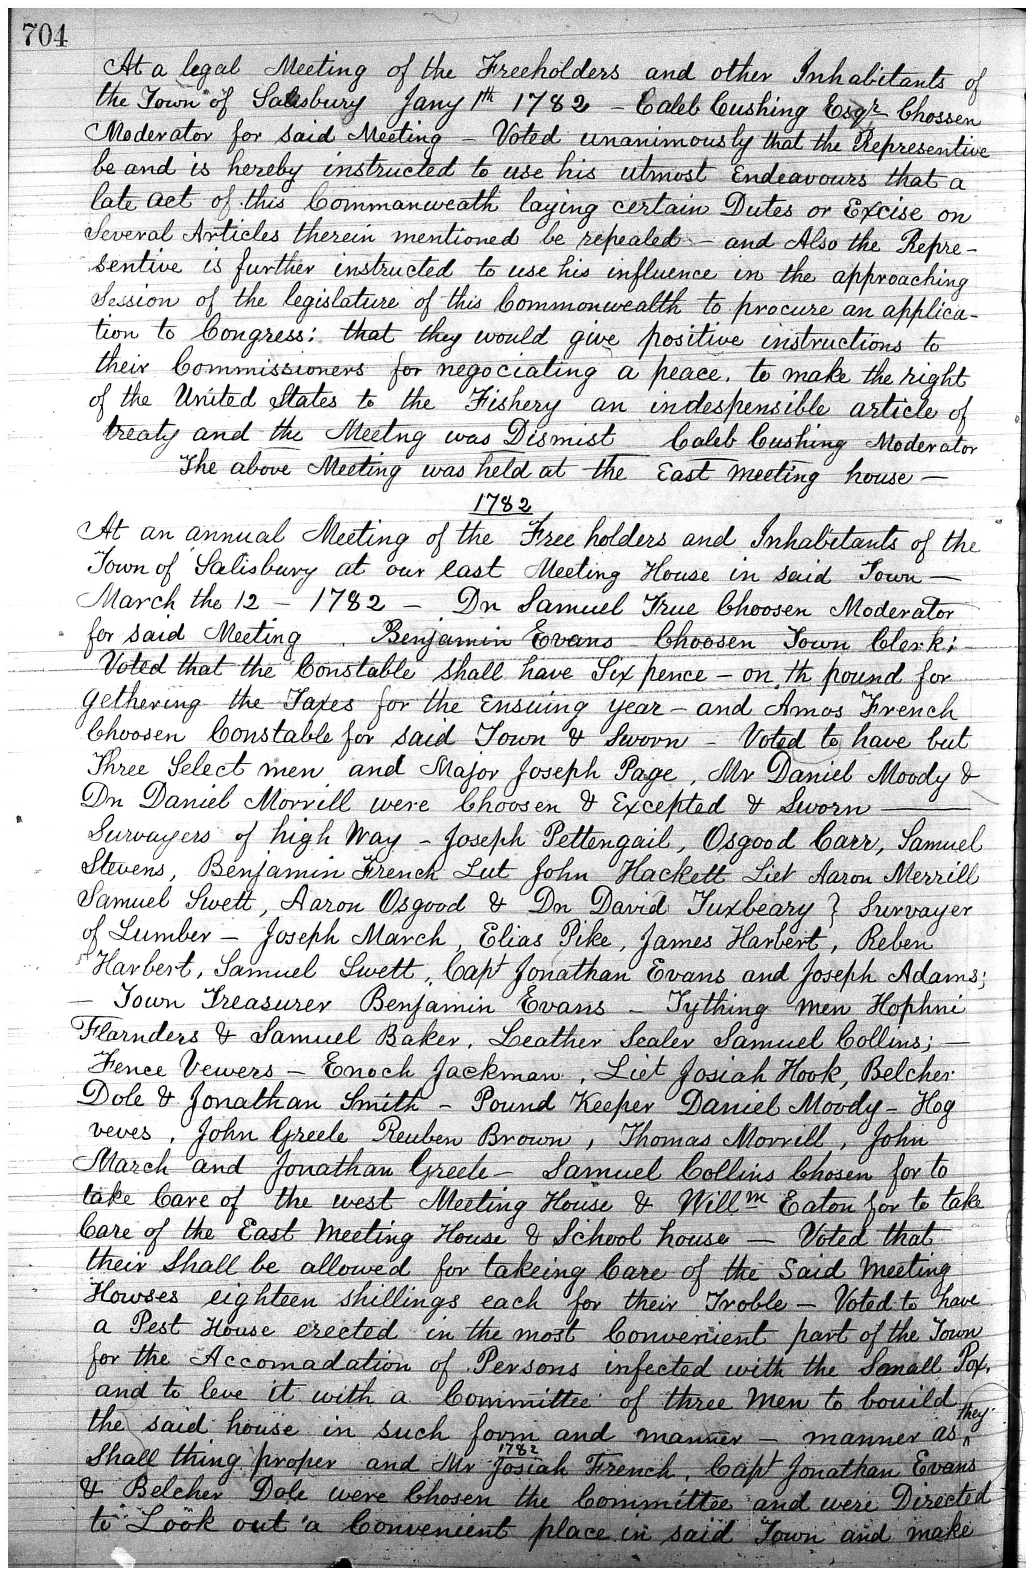 704
At a legal Meeting of the Freeholders and other Inhabitants of
the Town of Salisbury Jany 1th 1782 - Caleb Cushing Esqr Chossen
Moderator for said Meeting - Voted unanimously that the Representive
be and is hereby instructed to use his utmost Endeavours that a
late act of this Commanweath laying certain Dutes or Excise on
Several Articles therein mentioned be repealed - and Also the Repre-
sentive is further instructed to use his influence in the approaching
Session of the legislature of this Commonwealth to procure an applica-
tion to Congress: that they would give positive instructions to
their Commissioners for negociating a peace, to make the right
of the United States to the Fishery an indespensible article of
treaty and the Meetng was Dismist Caleb Cushing Moderator
The above Meeting was held at the East meeting house -
1782
At an annual Meeting of the Free holders and Inhabitants of the
Town of Salisbury at our east Meeting House in said Town -
March the 12 - 1782 - Dn Samuel True Choosen Moderator
for said Meeting. Benjamin Evans Choosen Town Clerk;
Voted that the Constable shall have Six pence - on th pound for
gethering the Taxes for the Ensuing year - and Amos French
Choosen Constable for said Town & Sworn - Voted to have but
Three Select men and Major Joseph Page, Mr Daniel Moody &
Dn Daniel Morrill were Choosen & Excepted & Sworn -
Survayers of high Way - Joseph Pettengail, Osgood Carr, Samuel
Stevens, Benjamin French Lut John Hackett Liet Aaron Merrill
Samuel Swett, Aaron Osgood & Dn David Tuxbeary } Survayer
of Lumber - Joseph March, Elias Pike, James Harbert, Reben
Harbert, Samuel Swett, Capt Jonathan Evans and Joseph Adams;
- Town Treasurer Benjamin Evans - Tything men Hophni
Flarnders & Samuel Baker, Leather Sealer Samuel Collins; -
Fence Vewers - Enoch Jackman, Liet Josiah Hook, Belcher
Dole & Jonathan Smith - Pound Keeper Daniel Moody - Hog
veves, John Greele Reuben Brown, Thomas Morrill, John
March and Jonathan Greele - Samuel Collins Chosen for to
take Care of the west Meeting House & Willm Eaton for to take
Care of the East Meeting House & School house - Voted that
their Shall be allowed for takeing Care of the Said Meeting
Howses eighteen shillings each for their Troble - Voted to have
a Pest House erected in the most Convenient part of the Town
for the Accomadation of Persons infected with the Small Pox,
and to leve it with a Committee of three Men to bouild
the said house in such form and manner - manner as they
Shall thing proper and Mr Josiah French, Capt Jonathan Evans
1782
& Belcher Dole were Chosen the Committee and were Directed
to Look out a Convenient place in said Town and make